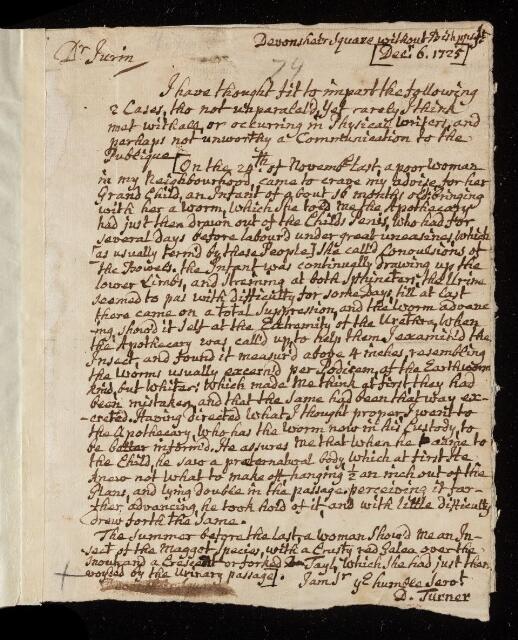 Devonsheir Square without Bishopsgt.
Dr Jurin
[Decr. 6. 1725]
74
I have thought fit to impart the following
2 Cases, tho not unparalel'd, Yet rarely I think
met withall, or occurring in Physical Writers, and
perhaps not unworthy a Communication to the
Publique. [On the 24th of Novembr last, a poor woman
in my Neighbourhood, came to crave my advise for her
Grand Child, an Infant of about 16 months old, bringing
with her a Worm, which She told me the Apothecary
had just then drawn out of the Childs Penis, who had for
several Days before labour'd under great uneasiness, which
[as usually term'd by these People] She call'd Convulsions of
the Bowels. the Infant was continually drawing up the
lower Limbs, and Straining at both Sphincters: the Urine
seemed to pass with difficulty for some Days, till at last
there came on a total Suppression, and the worm advanc
-ing show'd it Self at the Extremity of the Urethra, When
the Apothecary was call'd up to help them, I examin'd the
Insect, and found it measur'd above 4 inches, resembling
the Worms usually excern'd per Podicem, of the Earthworm
kind, but Whiter: Which made me think at first they had
been mistaken, and that the Same had been that way ex-
-creted. Having directed what I thought proper, I went to
the Apothecary, who has the worm now in his Custody, to
be better inform'd. He assures me that when he came to
the Child, he saw a praeternatural body which at first He
knew not what to make off, hanging ½ an inch out of the
Glans, and lying double in the passage. perceiving it far-
ther, advancing, he took hold of it and with little difficulty
drew forth the Same.
The Summer before the last, a woman Show'd me an In-
sect of the Maggot Species, with a Crusty red Galea over the
Snout and a Crescent or forked Tayl, Which She had just then
voyded by the Urinary passage]. I am Sr ye humble Servt
D. Turner